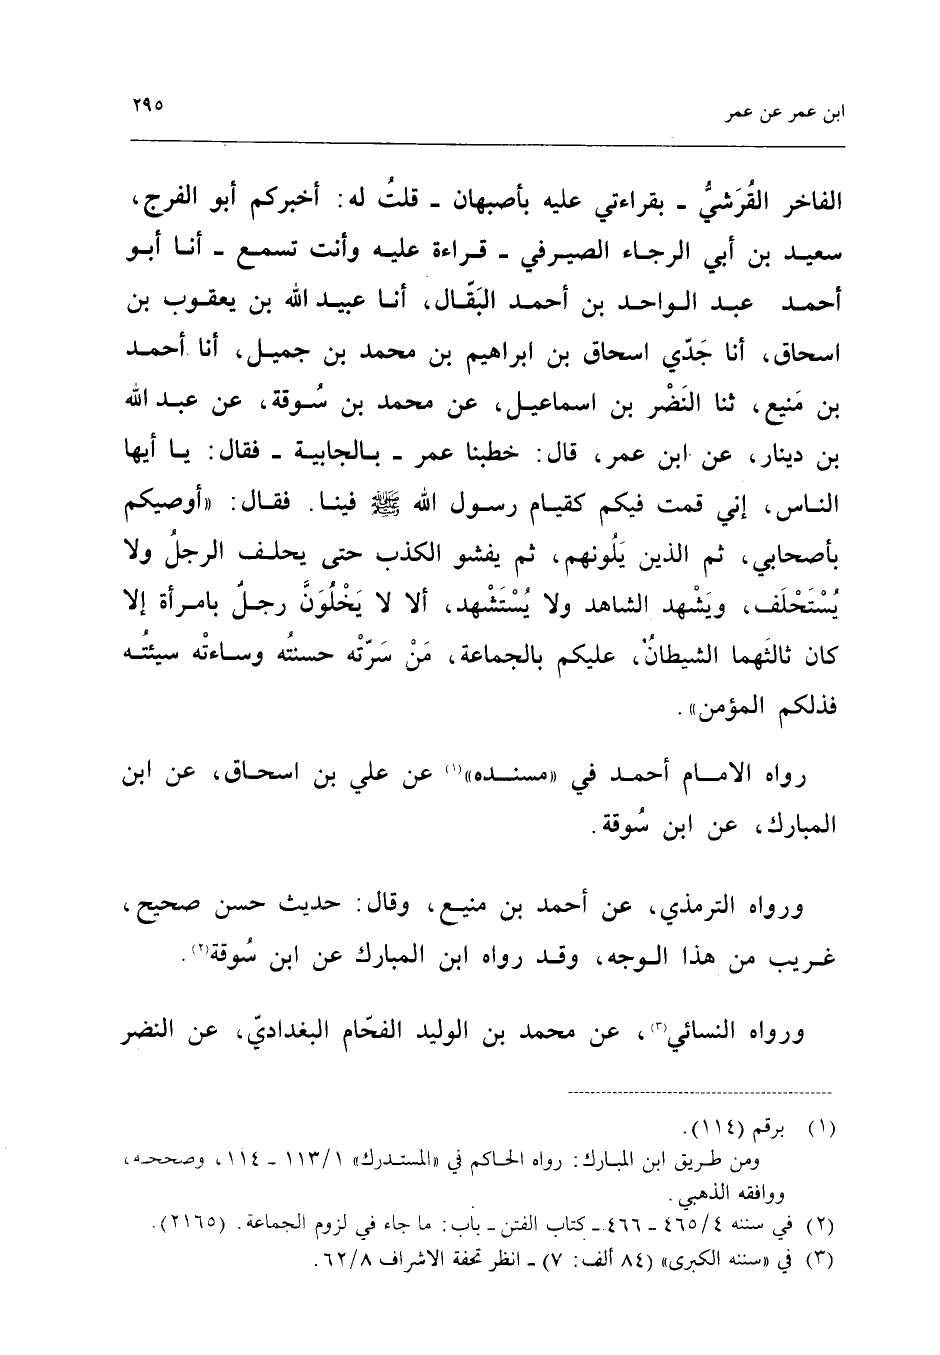 ابن عمر عن عمر
٢٩٥
الفاخر القُرَشيُّ ـ بقراءتي عليه بأصبهان ـ قلتُ له: أخبركم أبو الفرج،
سعيد بن أبي الرجاء الصيرفي ـ قراءة عليه وأنت تسمع ـ أنا أبو
أحمد عبد الواحد بن أحمد البَقّال، أنا عبيد الله بن يعقوب بن
اسحاق، أنا جَدّي اسحاق بن ابراهيم بن محمد بن جميل، أنا أحمد
بن مَنيع، ثنا النَضْر بن اسماعيل، عن محمد بن سُوقة، عن عبد الله
بن دينار، عن ابن عمر، قال: خطبنا عمر ـ بالجابية ـ فقال: يا أيها
الناس، إني قمت فيكم كقيام رسول الله ﷺ فينا. فقال: «أوصيكم
بأصحابي، ثم الذين يَلُونهم، ثم يفشو الكذب حتى يحلف الرجلُ ولا
يُسْتَحْلَف، ويَشْهد الشاهد ولا يُسْتَشْهد، ألا لا يَخْلُوَنَّ رجلٌ بامرأة إلا
كان ثالثَهما الشيطانُ، عليكم بالجماعة، مَنْ سَرّتْه حسنتُه وساءتْه سيئتُه
فذلكم المؤمن».
رواه الامام أحمد في «مسنده»(١) عن علي بن اسحاق، عن ابن
المبارك، عن ابن سُوقة.
ورواه الترمذي، عن أحمد بن منيع، وقال: حديث حسن صحيح،
غريب من هذا الوجه، وقد رواه ابن المبارك عن ابن سُوقة(٢).
ورواه النسائي(٣)، عن محمد بن الوليد الفحّام البغداديّ، عن النضر
(١) برقم (١١٤).
ومن طريق ابن المبارك: رواه الحاكم في «المستدرك» ١/١١٣ ـ ١١٤، وصححه،
ووافقه الذهبي.
(٢) في سننه ٤/٤٦٥ ـ ٤٦٦ ـ كتاب الفتن ـ باب: ما جاء في لزوم الجماعة. (٢١٦٥).
(٣) في «سننه الكبرى» (٨٤ ألف: ٧) ـ انظر تحفة الاشراف ٨/٦٢.